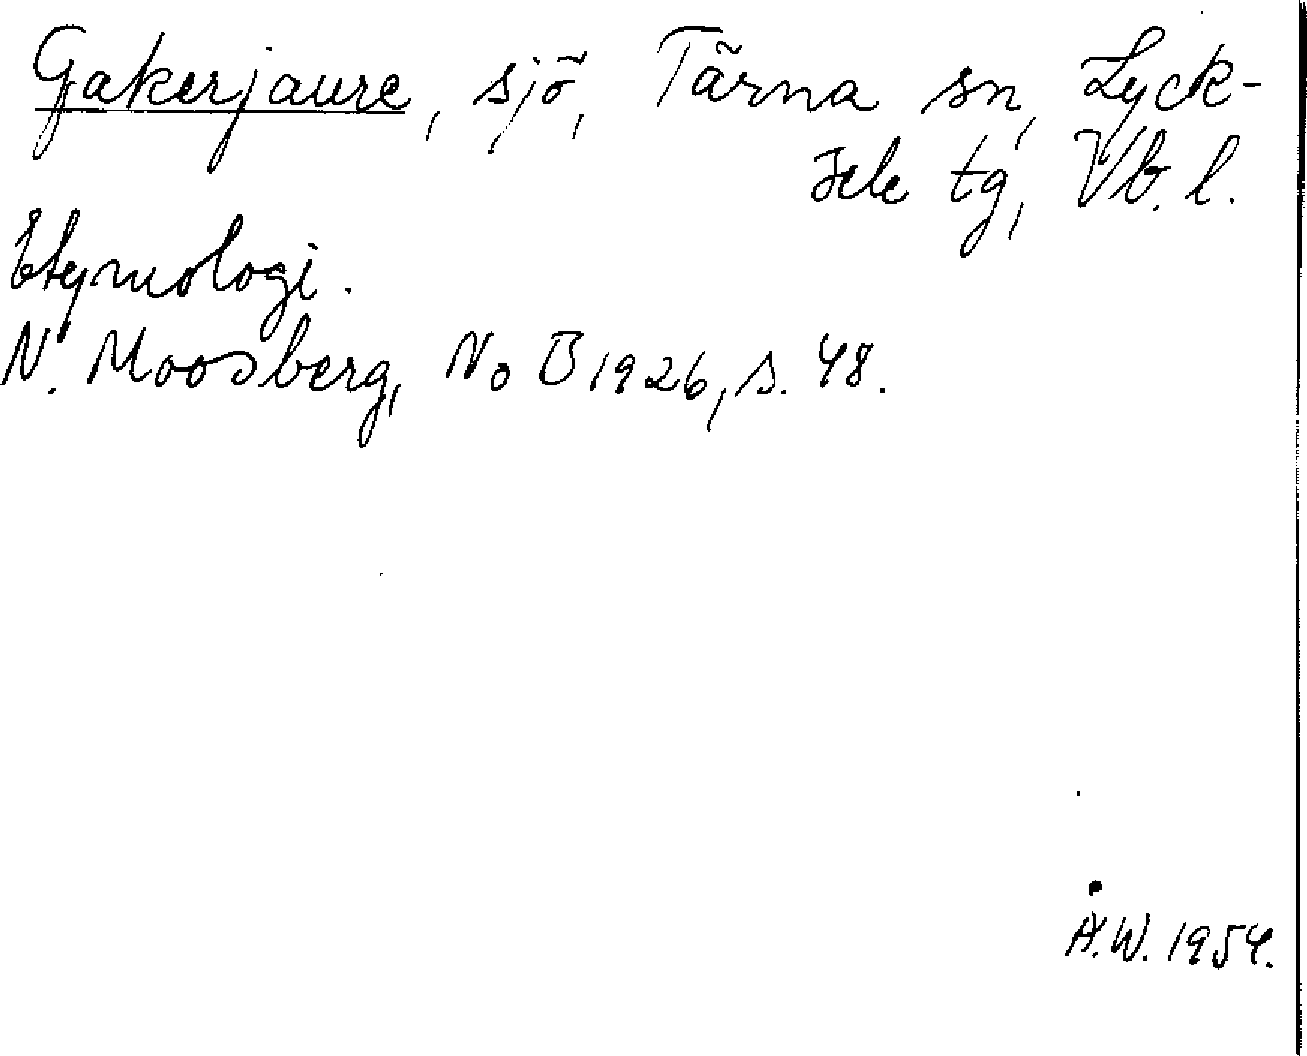 Gakerjaure, sjö, Tärna sn, Lyck-
sele tg, Vb. l.
Etymologi.
N. Moosberg, NoB 1926, s. 48.
Å.W. 1954.